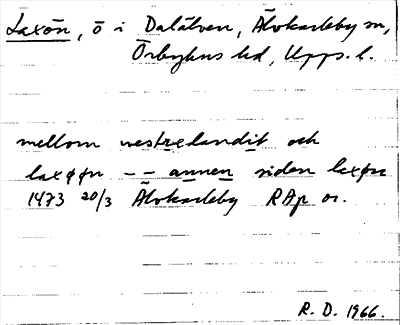 Laxön, ö i Dalälven, Älvkarleby sn,
Örbyhus hd, Upps. l.
mellom westrelandit och
laxøøn -- annen siden laxøn
1473 20/3 Älvkarleby RAp or.
R. D. 1966.